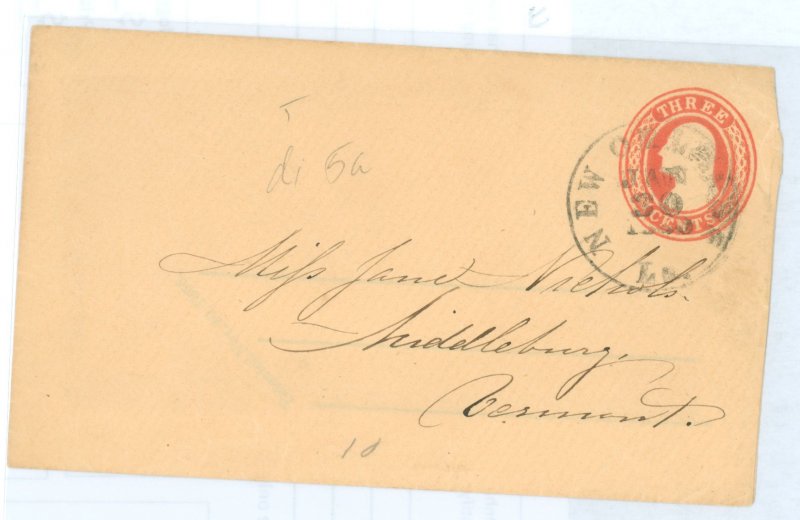 E
THREE
CENTS
NEW
JAN
La.
di 5a
Miss Jane Nichols.
Middleburg,
Vermont.
10